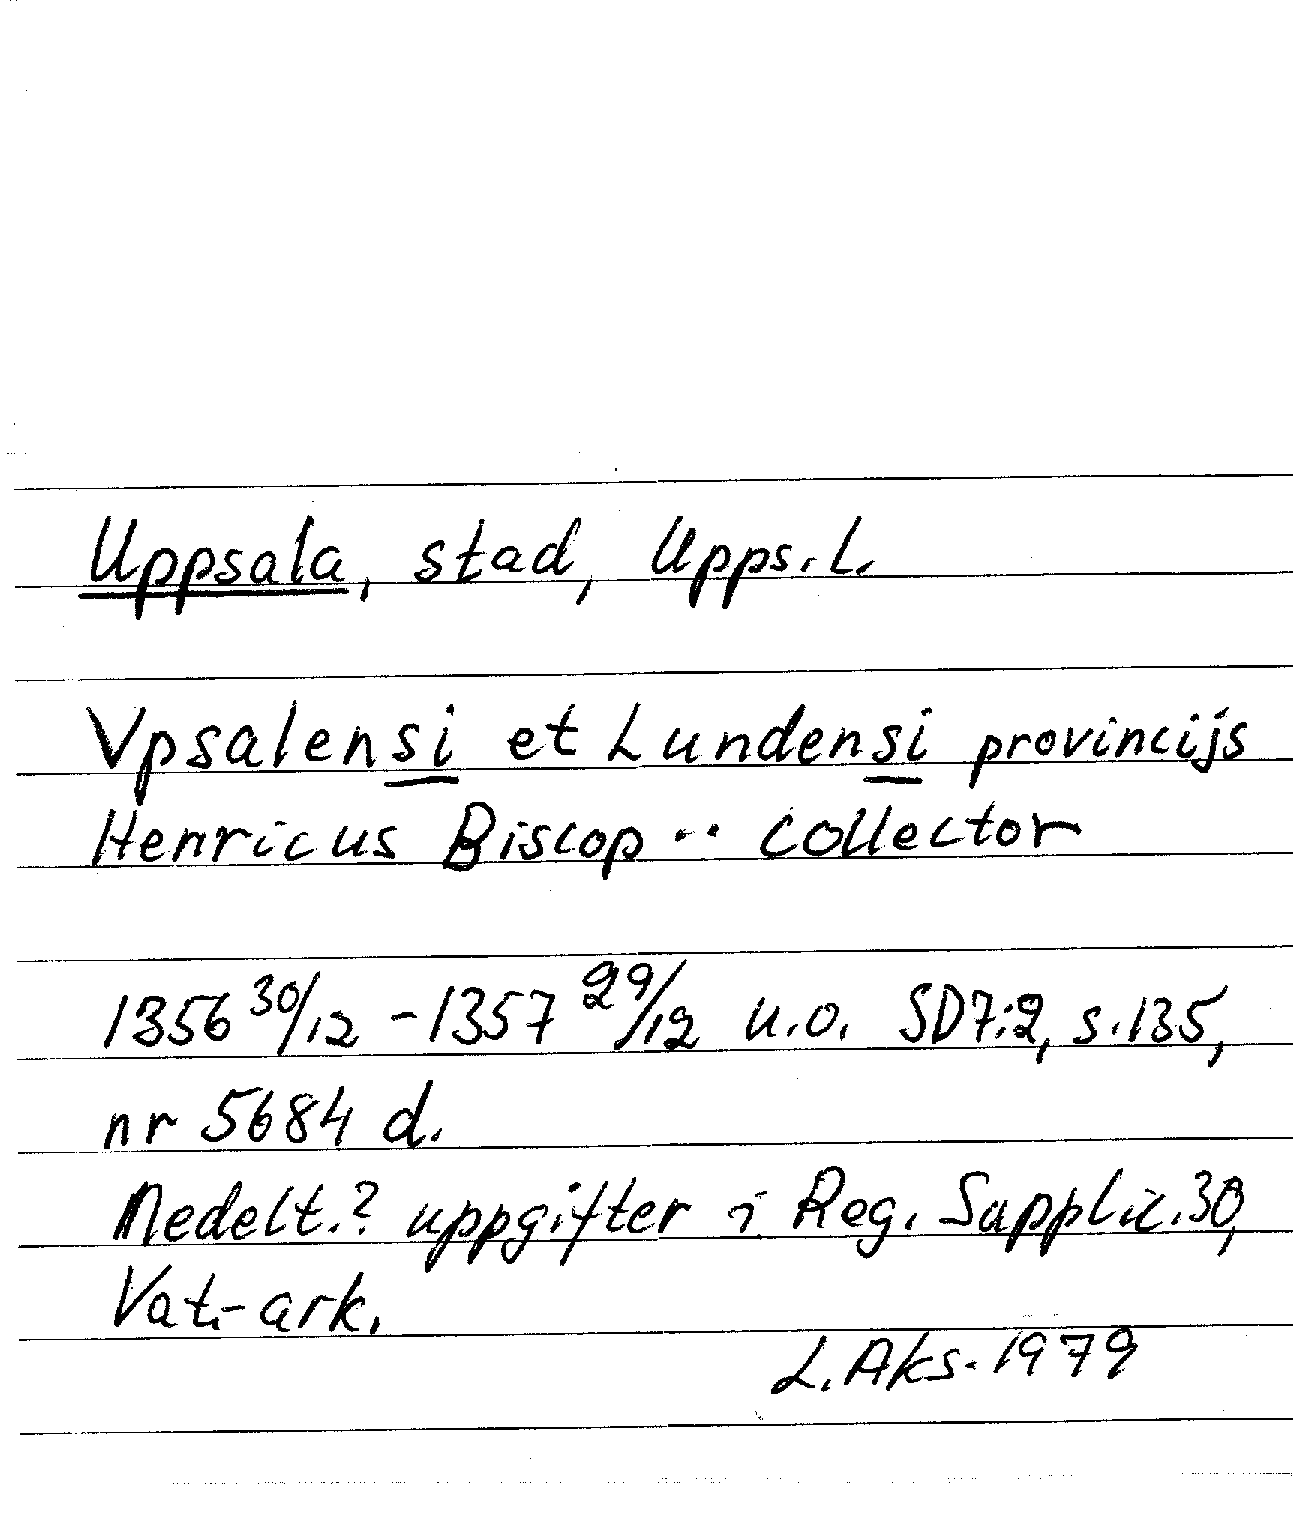 Uppsala, stad, Upps. L.
Vpsalensi et Lundensi provincijs
Henricus Biscop .. collector
1356 30/12 - 1357 29/12 u.o. SD7:2, s. 135,
nr 5684 d.
Medelt.? uppgifter i Reg. Supplic. 30,
Vat.-ark.
L. Aks. 1979